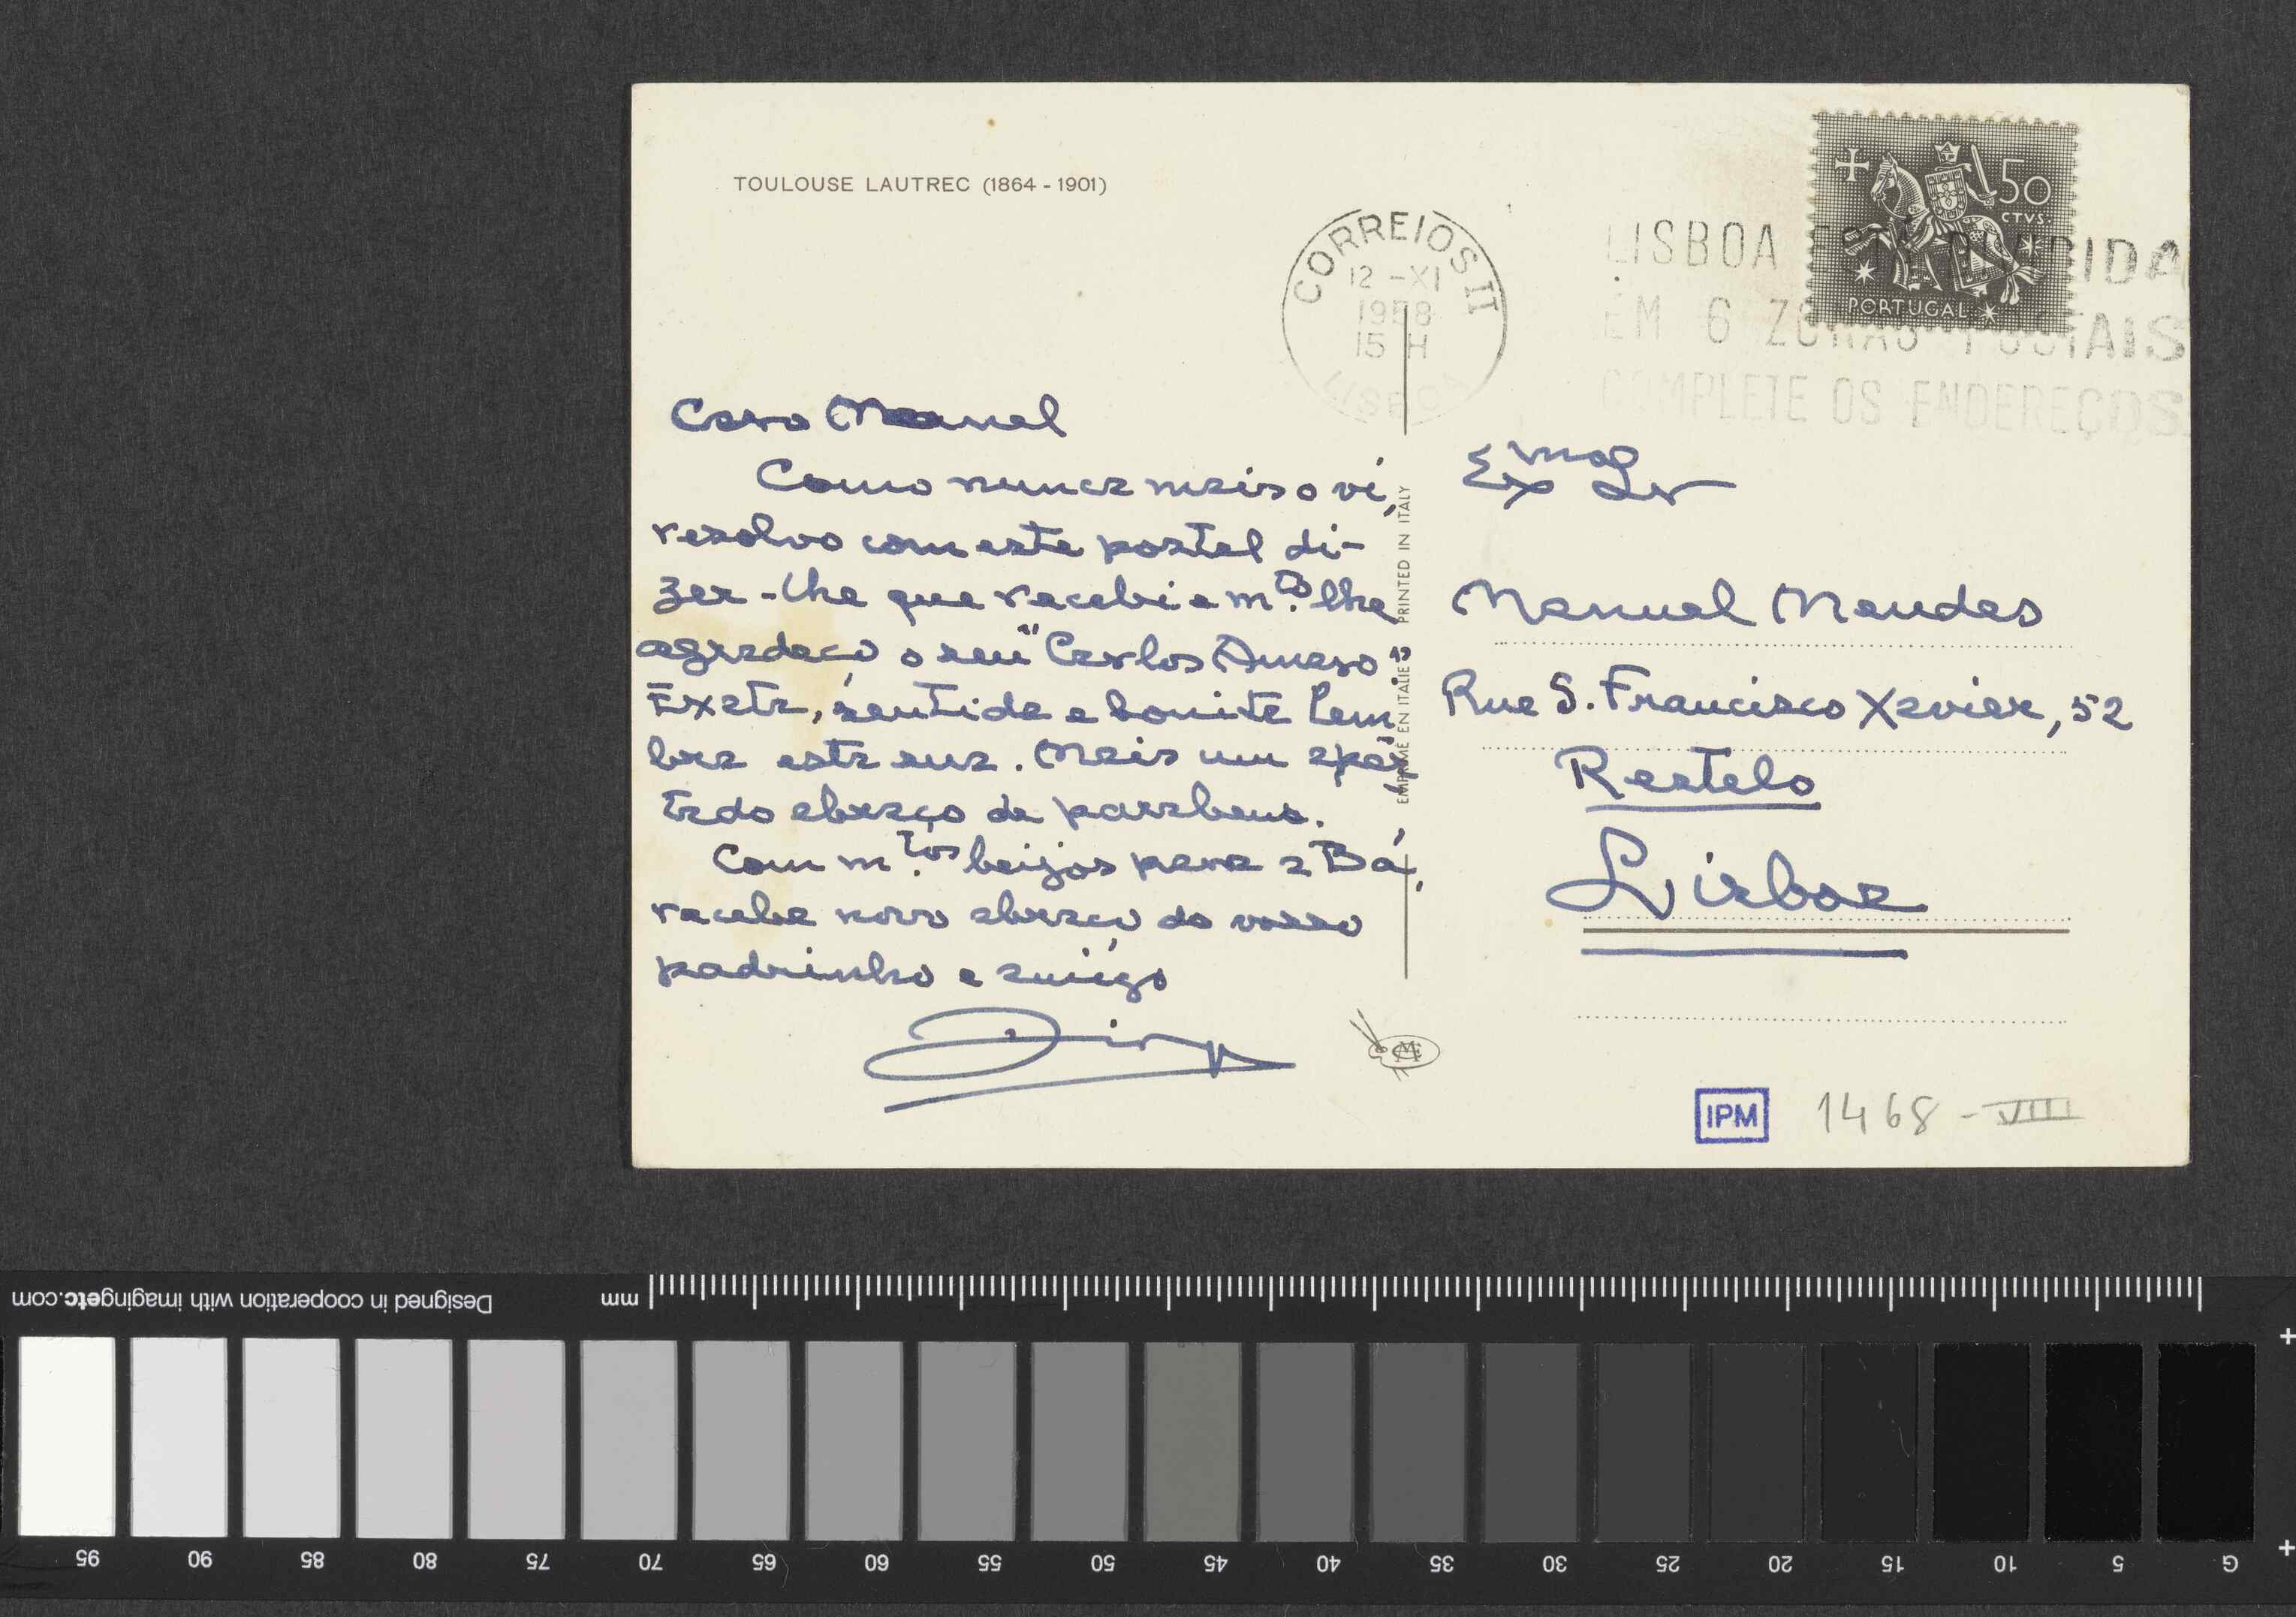 TOULOUSE LAUTREC (1864 - 1901)
CORREIOS II
12 - XI
1958
15 H
LISBOA
LISBOA ESTÁ DIVIDIDA
EM 6 ZONAS POSTAIS
COMPLETE OS ENDEREÇOS
50
CTVS.
PORTUGAL
Caro Manuel
Como nunca mais o vi,
resolvo com este postal di-
zer-lhe que recebi e m.to lhe
agradeço o seu "Carlos Amaro".
Exata, sentida e bonita lem-
bra esta sua. Mais um aper-
tado abraço de parabens.
Com m.tos beijos para a Bá,
recebe novo abraço do vosso
padrinho e amigo
EMPRIMÉ EN ITALIE PRINTED IN ITALY
Exmo Sr
Manuel Mendes
Rua S. Francisco Xavier, 52
Restelo
Lisboa
IPM
1468 - VIII
Designed in cooperation with imagingetc.com
mm
95 90 85 80 75 70 65 60 55 50 45 40 35 30 25 20 15 10 5 G